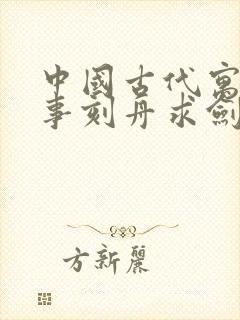 中國古代寓
事刻舟求劍
方新麗